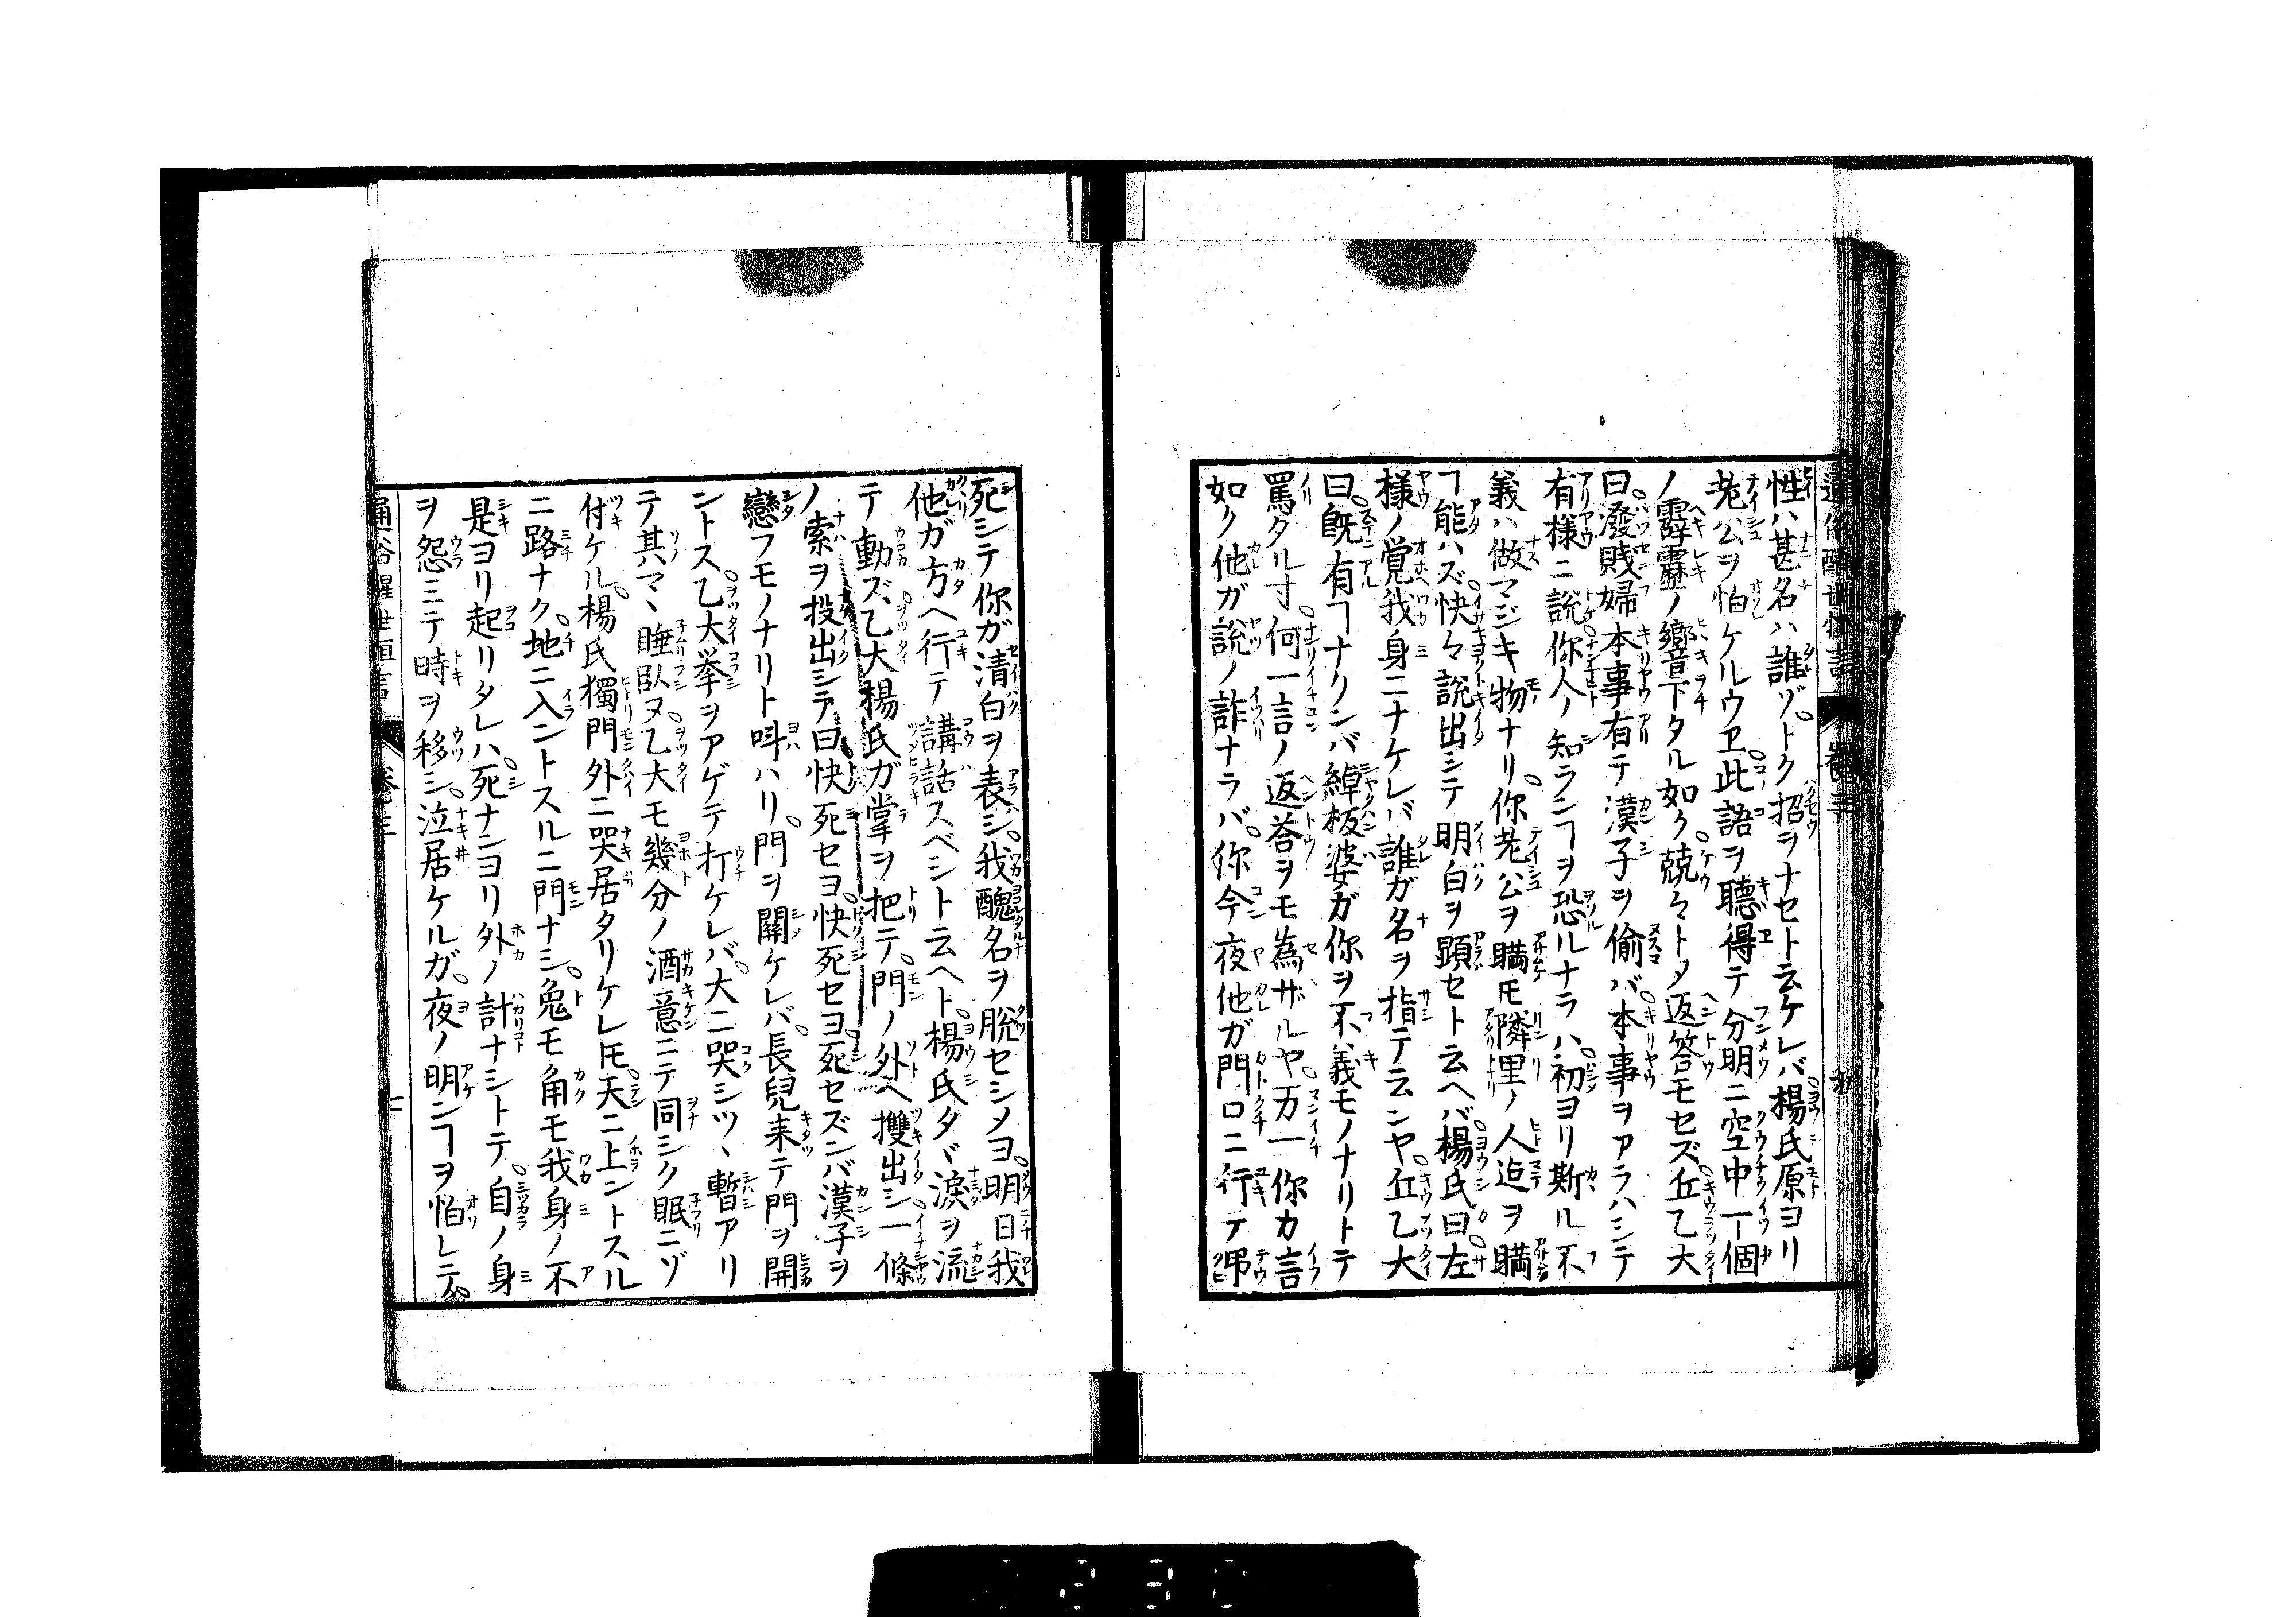 性ハ甚名ハ誰ゾトク招ヲナセト云ケレバ楊氏原ヨリ
老公ヲ怕ケルウヱ此語ヲ聽得テ分明ニ空中一個
ノ霹靂ノ響下タル如ク兢々トメ返答モセズ丘乙大
曰潑賤婦本事有テ漢子ヲ偷バ本事ヲアラハシテ
有様ニ説你人ノ知ランヿヲ恐ルナラハ初ヨリ斯ル不
義ハ做マジキ物ナリ你老公ヲ瞞モ隣里ノ人迠ヲ瞞
ヿ能ハズ快々説出シテ明白ヲ顕セト云ヘバ楊氏曰左
様ノ覚我身ニナケレバ誰ガ名ヲ指テ云ンヤ丘乙大
曰既有ヿナクンバ綽板婆ガ你ヲ不義モノナリトテ
罵タル寸何一言ノ返荅ヲモ為ザルヤ万一你カ言
如ク他ガ説ノ詐ナラバ你今夜他ガ門口ニ行テ弔
死シテ你ガ清白ヲ表シ我醜名ヲ脱セシメヨ明日我
他ガ方ヘ行テ講話スベシト云ヘト楊氏タヾ淚ヲ流
テ動ズ乙大楊氏ガ掌ヲ把テ門ノ外ヘ㩳出シ一條
ノ索ヲ投出シテ曰快死セヨ快死セヨ死セズンバ漢子ヲ
戀フモノナリト呌ハリ門ヲ關ケレバ長兒来テ門ヲ開
ントス乙大挙ヲアゲテ打ケレバ大ニ哭シツヽ暫アリ
テ其マヽ睡臥ヌ乙大モ幾分ノ酒意ニテ同シク眠ニゾ
付ケル楊氏獨門外ニ哭居タリケレ𪜈天ニ上ントスル
ニ路ナク地ニ入ントスルニ門ナシ兔モ角モ我身ノ不
是ヨリ起リタレハ死ナンヨリ外ノ計ナシトテ自ノ身
ヲ怨ミテ時ヲ移シ泣居ケルガ夜ノ明ンヿヲ怕レテ
通俗醒世恒言 巻三